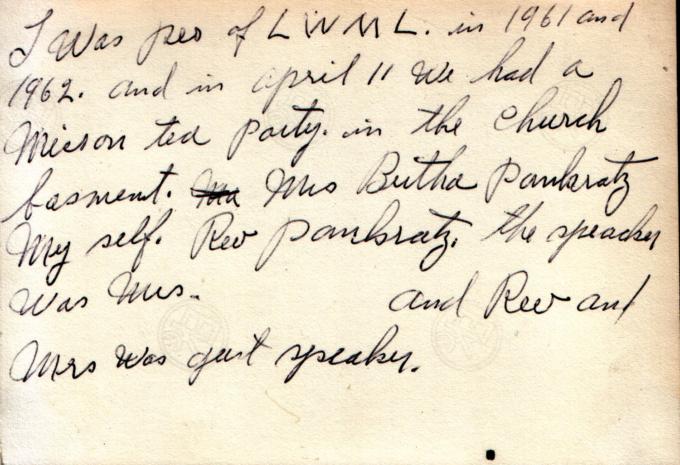 I Was pres of L W M L. in 1961 and
1962. and in april 11 We had a
Misson tea party. in the church
basment. Mrs Bertha Pankratz
My self. Rev Pankratz. the speaker
Was Mrs. and Rev and
Mrs Was gust speaker.